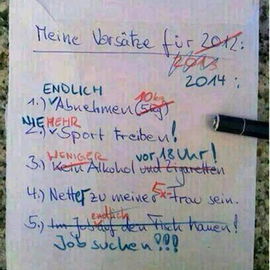 Meine Vorsätze für 2012:
2013
2014:
ENDLICH 10kg
1.) Abnehmen (5kg)
NIE MEHR
2.) Sport Treiben!
WENIGER vor 18 Uhr!
3.) Kein Alkohol und Zigaretten
4.) Netter zu meiner Ex-Frau sein.
endlich
5.) Im Job auf den Tisch hauen!
Job suchen!!!